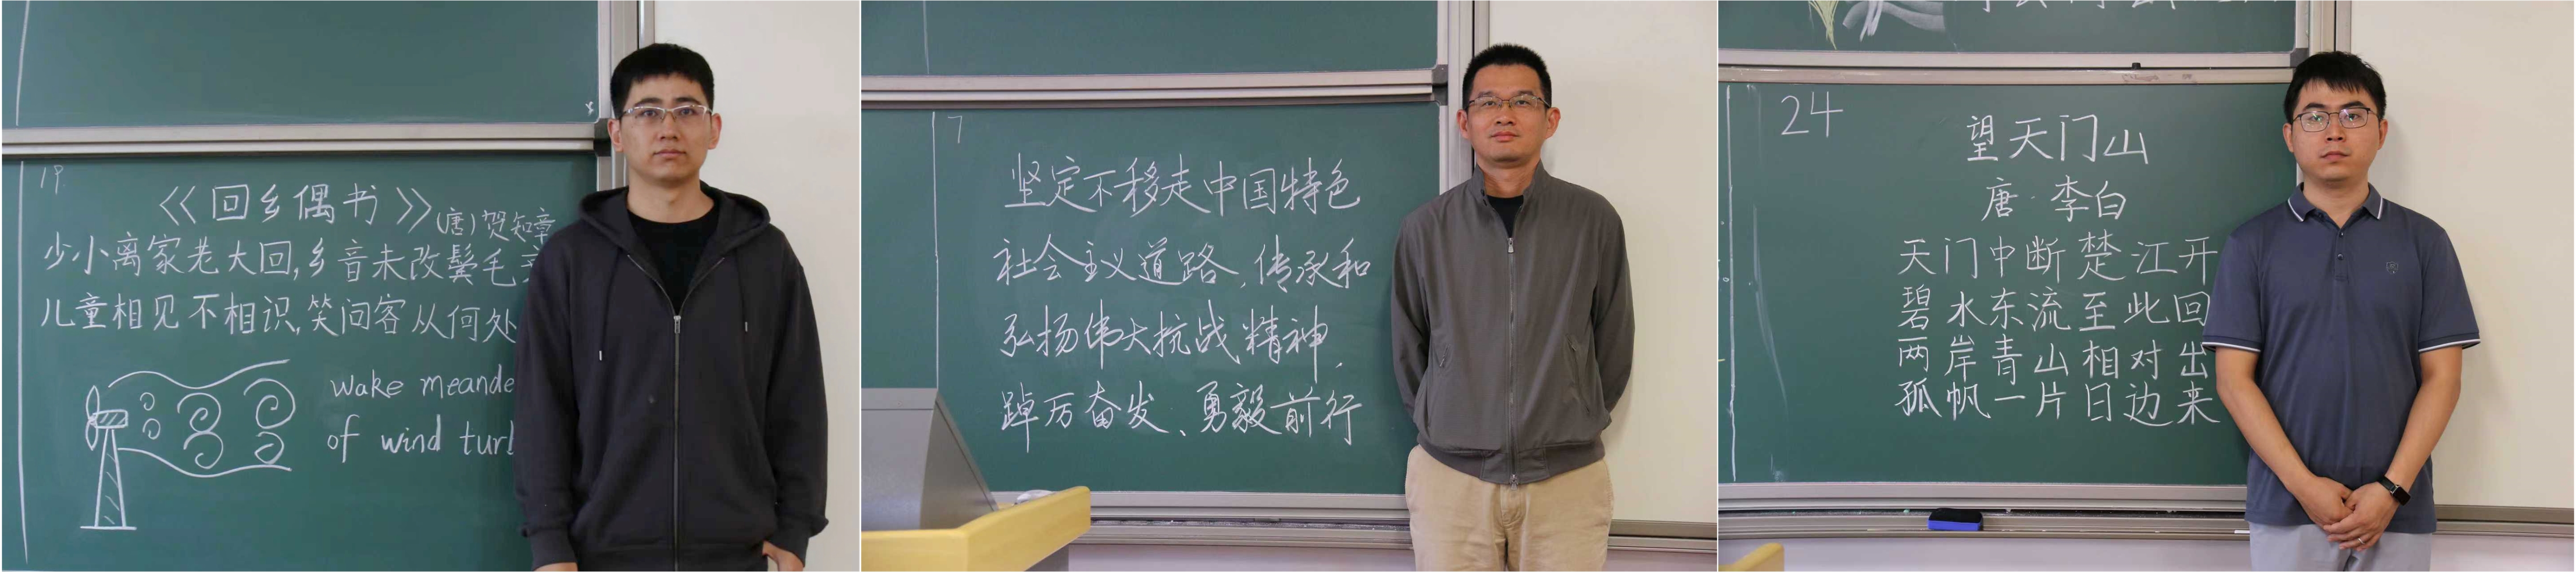 19.
《回乡偶书》(唐)贺知章
少小离家老大回,乡音未改鬓毛
儿童相见不相识,笑问客从何处
wake meande
of wind turb
7
坚定不移走中国特色
社会主义道路,传承和
弘扬伟大抗战精神,
踔厉奋发、勇毅前行
24
望天门山
唐·李白
天门中断楚江开
碧水东流至此回
两岸青山相对出
孤帆一片日边来